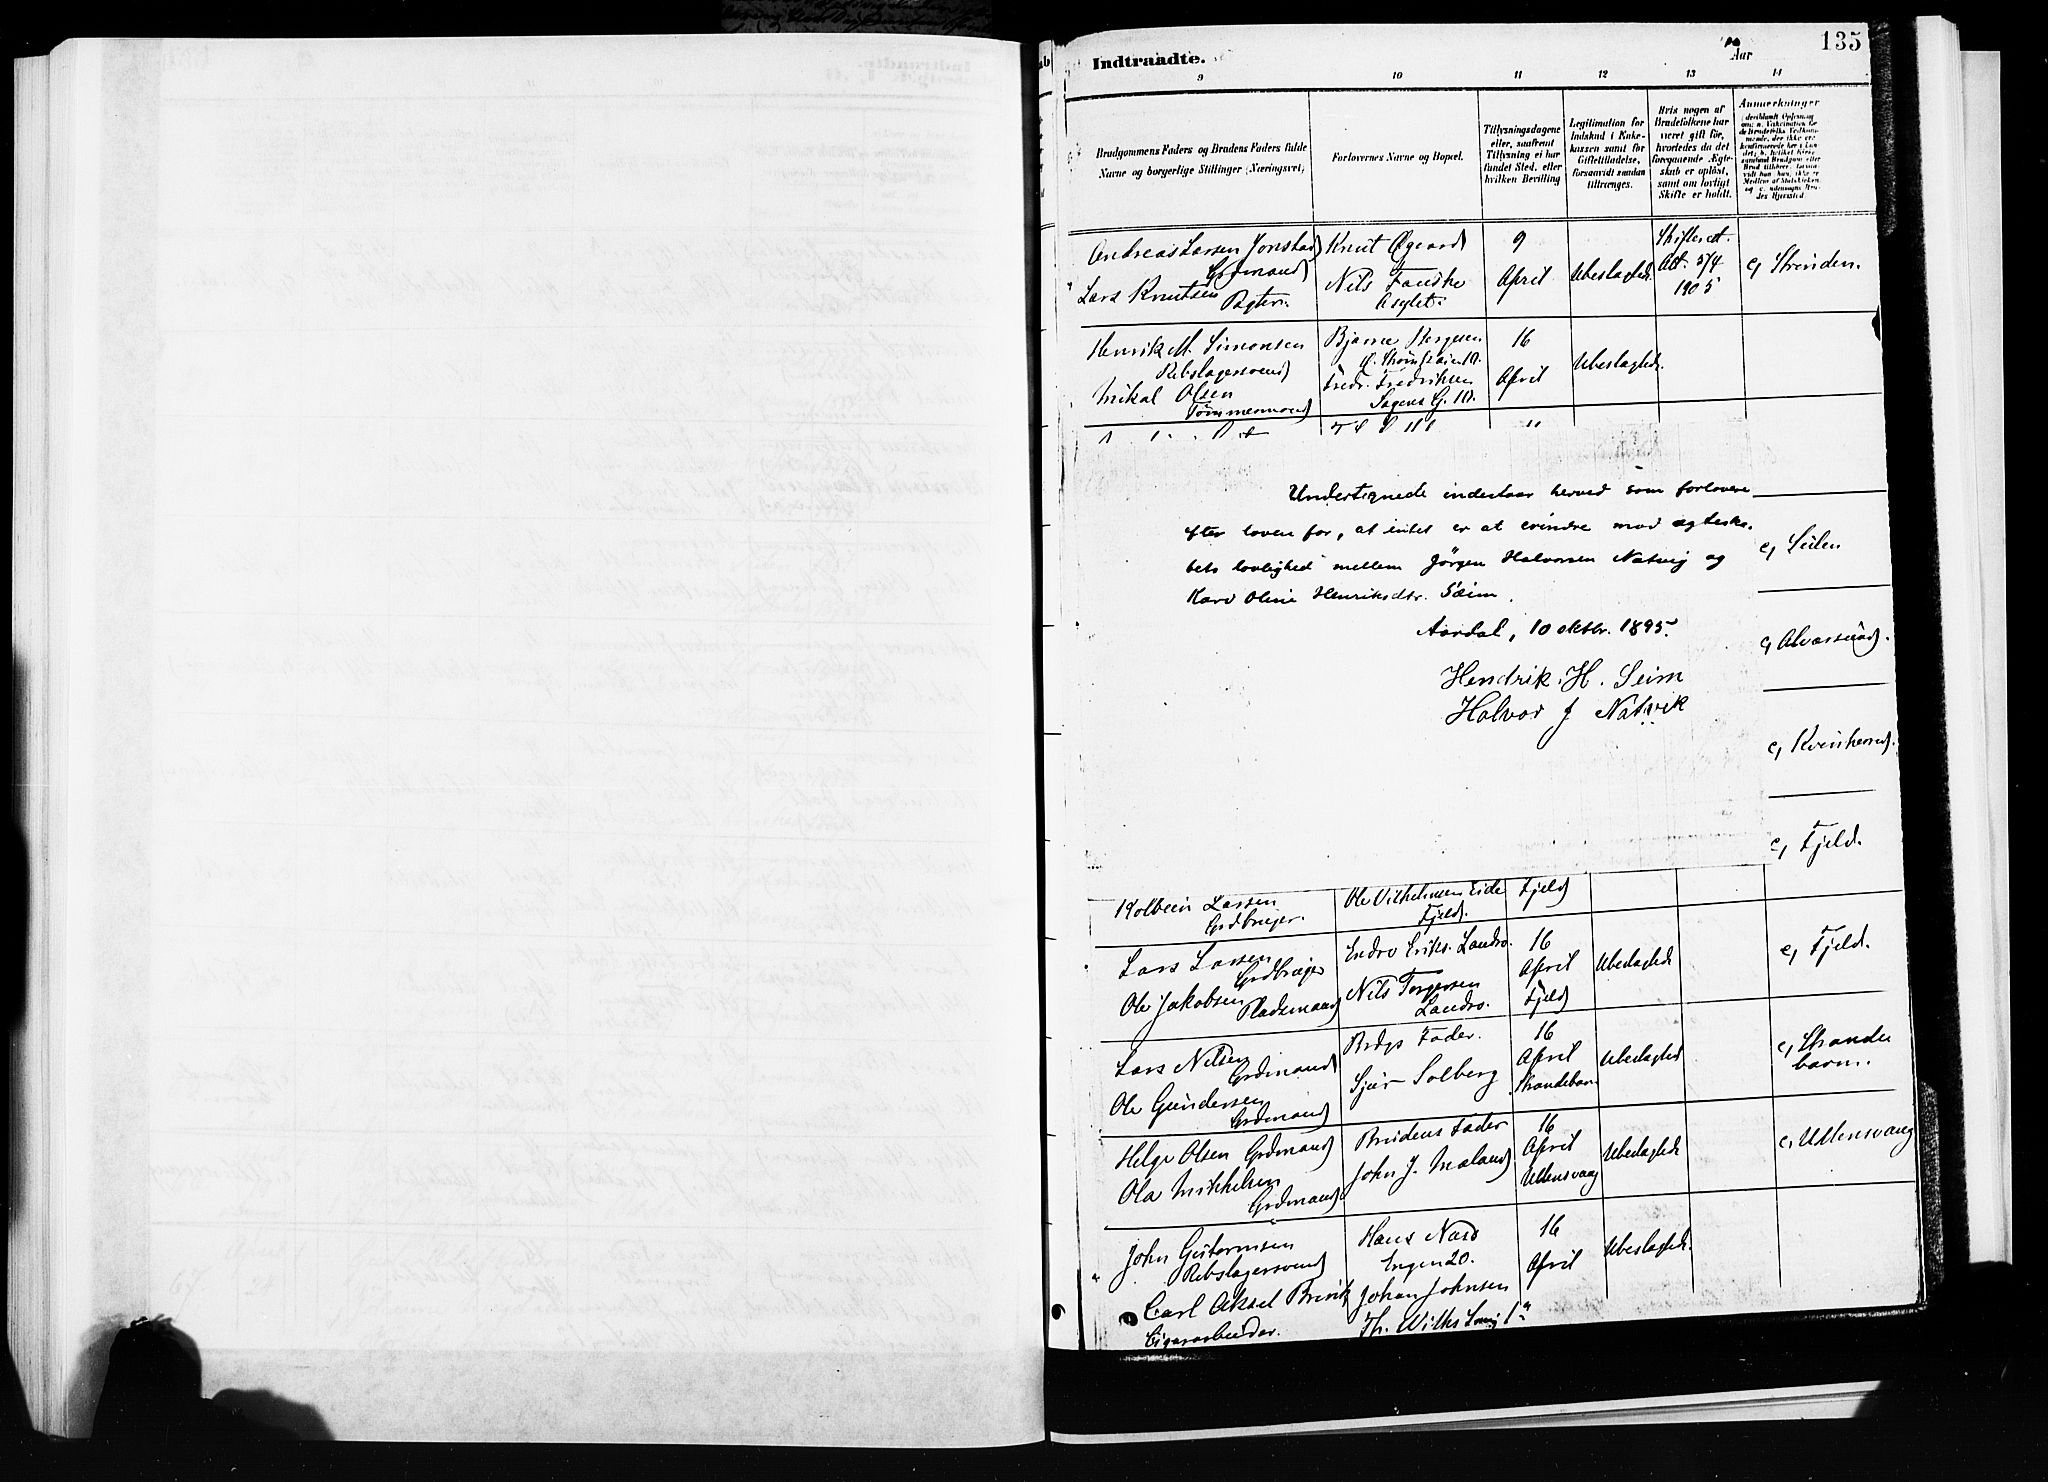 135
Indtraadte.
Aar
9
10
11
12
13
14
Brudgommens Faders og Brudens Faders fulde
Navne og borgerlige Stillinger (Næringsvei)
Forlovernes Navne og Bopæl.
Tillysningsdagene
eller, saafremt
Tillysning ei har
fundet Sted, efter
hvilken Bevilling
Legitimation for
Indskud i Enke-
kassen samt for
Giftetilladelse,
forsaavidt saadan
tiltrænges.
Hvis nogen af
Brudefolkene har
været gift før,
hvorledes da det
foregaaende Ægte-
skab er opløst,
samt om lovligt
Skifte er holdt.
Anmærkninger
Andreas Larsen Jonstad
Grdmand
Lars Knutsen
Pagter.
Knut Øgaard
Nils Fandke
Asylet.
9
April
Ubeslægtede
Skifteret.
Att. 5/4
1905
c, Strinden.
Henrik M. Simonsen
Rebslagersvend
Mikal Olsen
Tömmermand
Bjarne Børgesen
Fredr. Fredriksen
Sagens G. 10.
16
April
Ubeslægtede.
Undertegnede indestaar herved som forlovere
efter loven for, at intet er at erindre mod ægteska-
bets lovlighed mellem Jörgen Halvorsen Natvig og
Kari Oline Henriksdtr. Seim.
Aardal, 10 oktbr. 1895.
Hendrik. H. Seim
Halvor J Natvik
c, Seilen
c, Alvarsund.
c, Kvinherred.
c, Fjeld.
Kolbein Larsen
Grdbruger.
Ole Vilhelmsen Eide
Fjeld.
Fjeld
Lars Larsen
Grdbruger
Ole Jakobsen
Pladsmand
Endre Eriks. Landro.
Nils Torgersen
Landro.
16
April
Fjeld
Ubeslægtede
c, Fjeld.
Lars Nilsen
Grdmand
Ole Gundersen
Grdmand
Brdgs Fader.
Sjur Solberg
16
April
Strandebarm
Ubeslægtede
c, Strande
barm.
Helge Olsen Grdmand
Ola Mikkelsen
Grdmand
Brudens Fader
John J. Maland
16
April
Ullensvang
Ubeslægtede
c, Ullensvang
John Guttormsen
Rebslagersvend
Carl Aksel Brink
Cigararbeider.
Hans Næss
Engen 20.
Johan Johnsen
Th. Wilks Smug 1 a
16
April
Ubeslægtede.